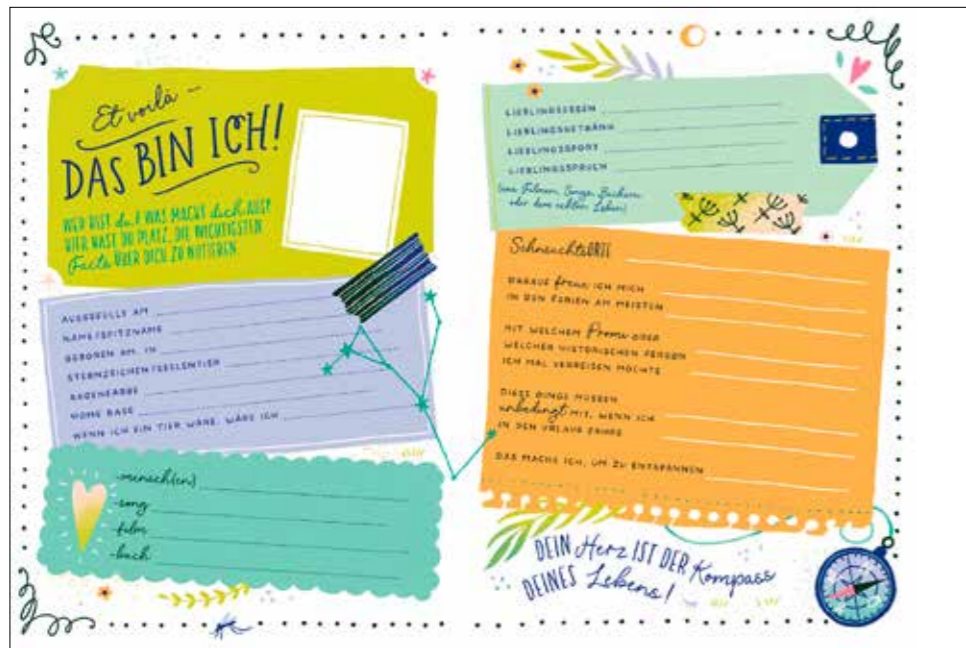 Et voilà –
DAS BIN ICH!
WER BIST du? WAS MACHT dich AUS?
HIER HAST DU PLATZ, DIE WICHTIGSTEN
Facts ÜBER DICH ZU NOTIEREN.
AUSGEFÜLLT AM
NAME/SPITZNAME
GEBOREN AM, IN
STERNZEICHEN/SEELENTIER
AUGENFARBE
HOME BASE
WENN ICH EIN TIER WÄRE, WÄRE ICH
-mensch(en)
-song
-film
-buch
LIEBLINGSESSEN
LIEBLINGSGETRÄNK
LIEBLINGSSPORT
LIEBLINGSSPRUCH
(aus Filmen, Songs, Büchern
oder dem echten Leben)
SehnsuchtsORTE
DARAUF freue ICH MICH
IN DEN FERIEN AM MEISTEN
MIT WELCHEM Promi ODER
WELCHER HISTORISCHEN PERSON
ICH MAL VERREISEN MÖCHTE
DIESE DINGE MÜSSEN
unbedingt MIT, WENN ICH
IN DEN URLAUB FAHRE
DAS MACHE ICH, UM ZU ENTSPANNEN
DEIN Herz IST DER Kompass
DEINES Lebens!